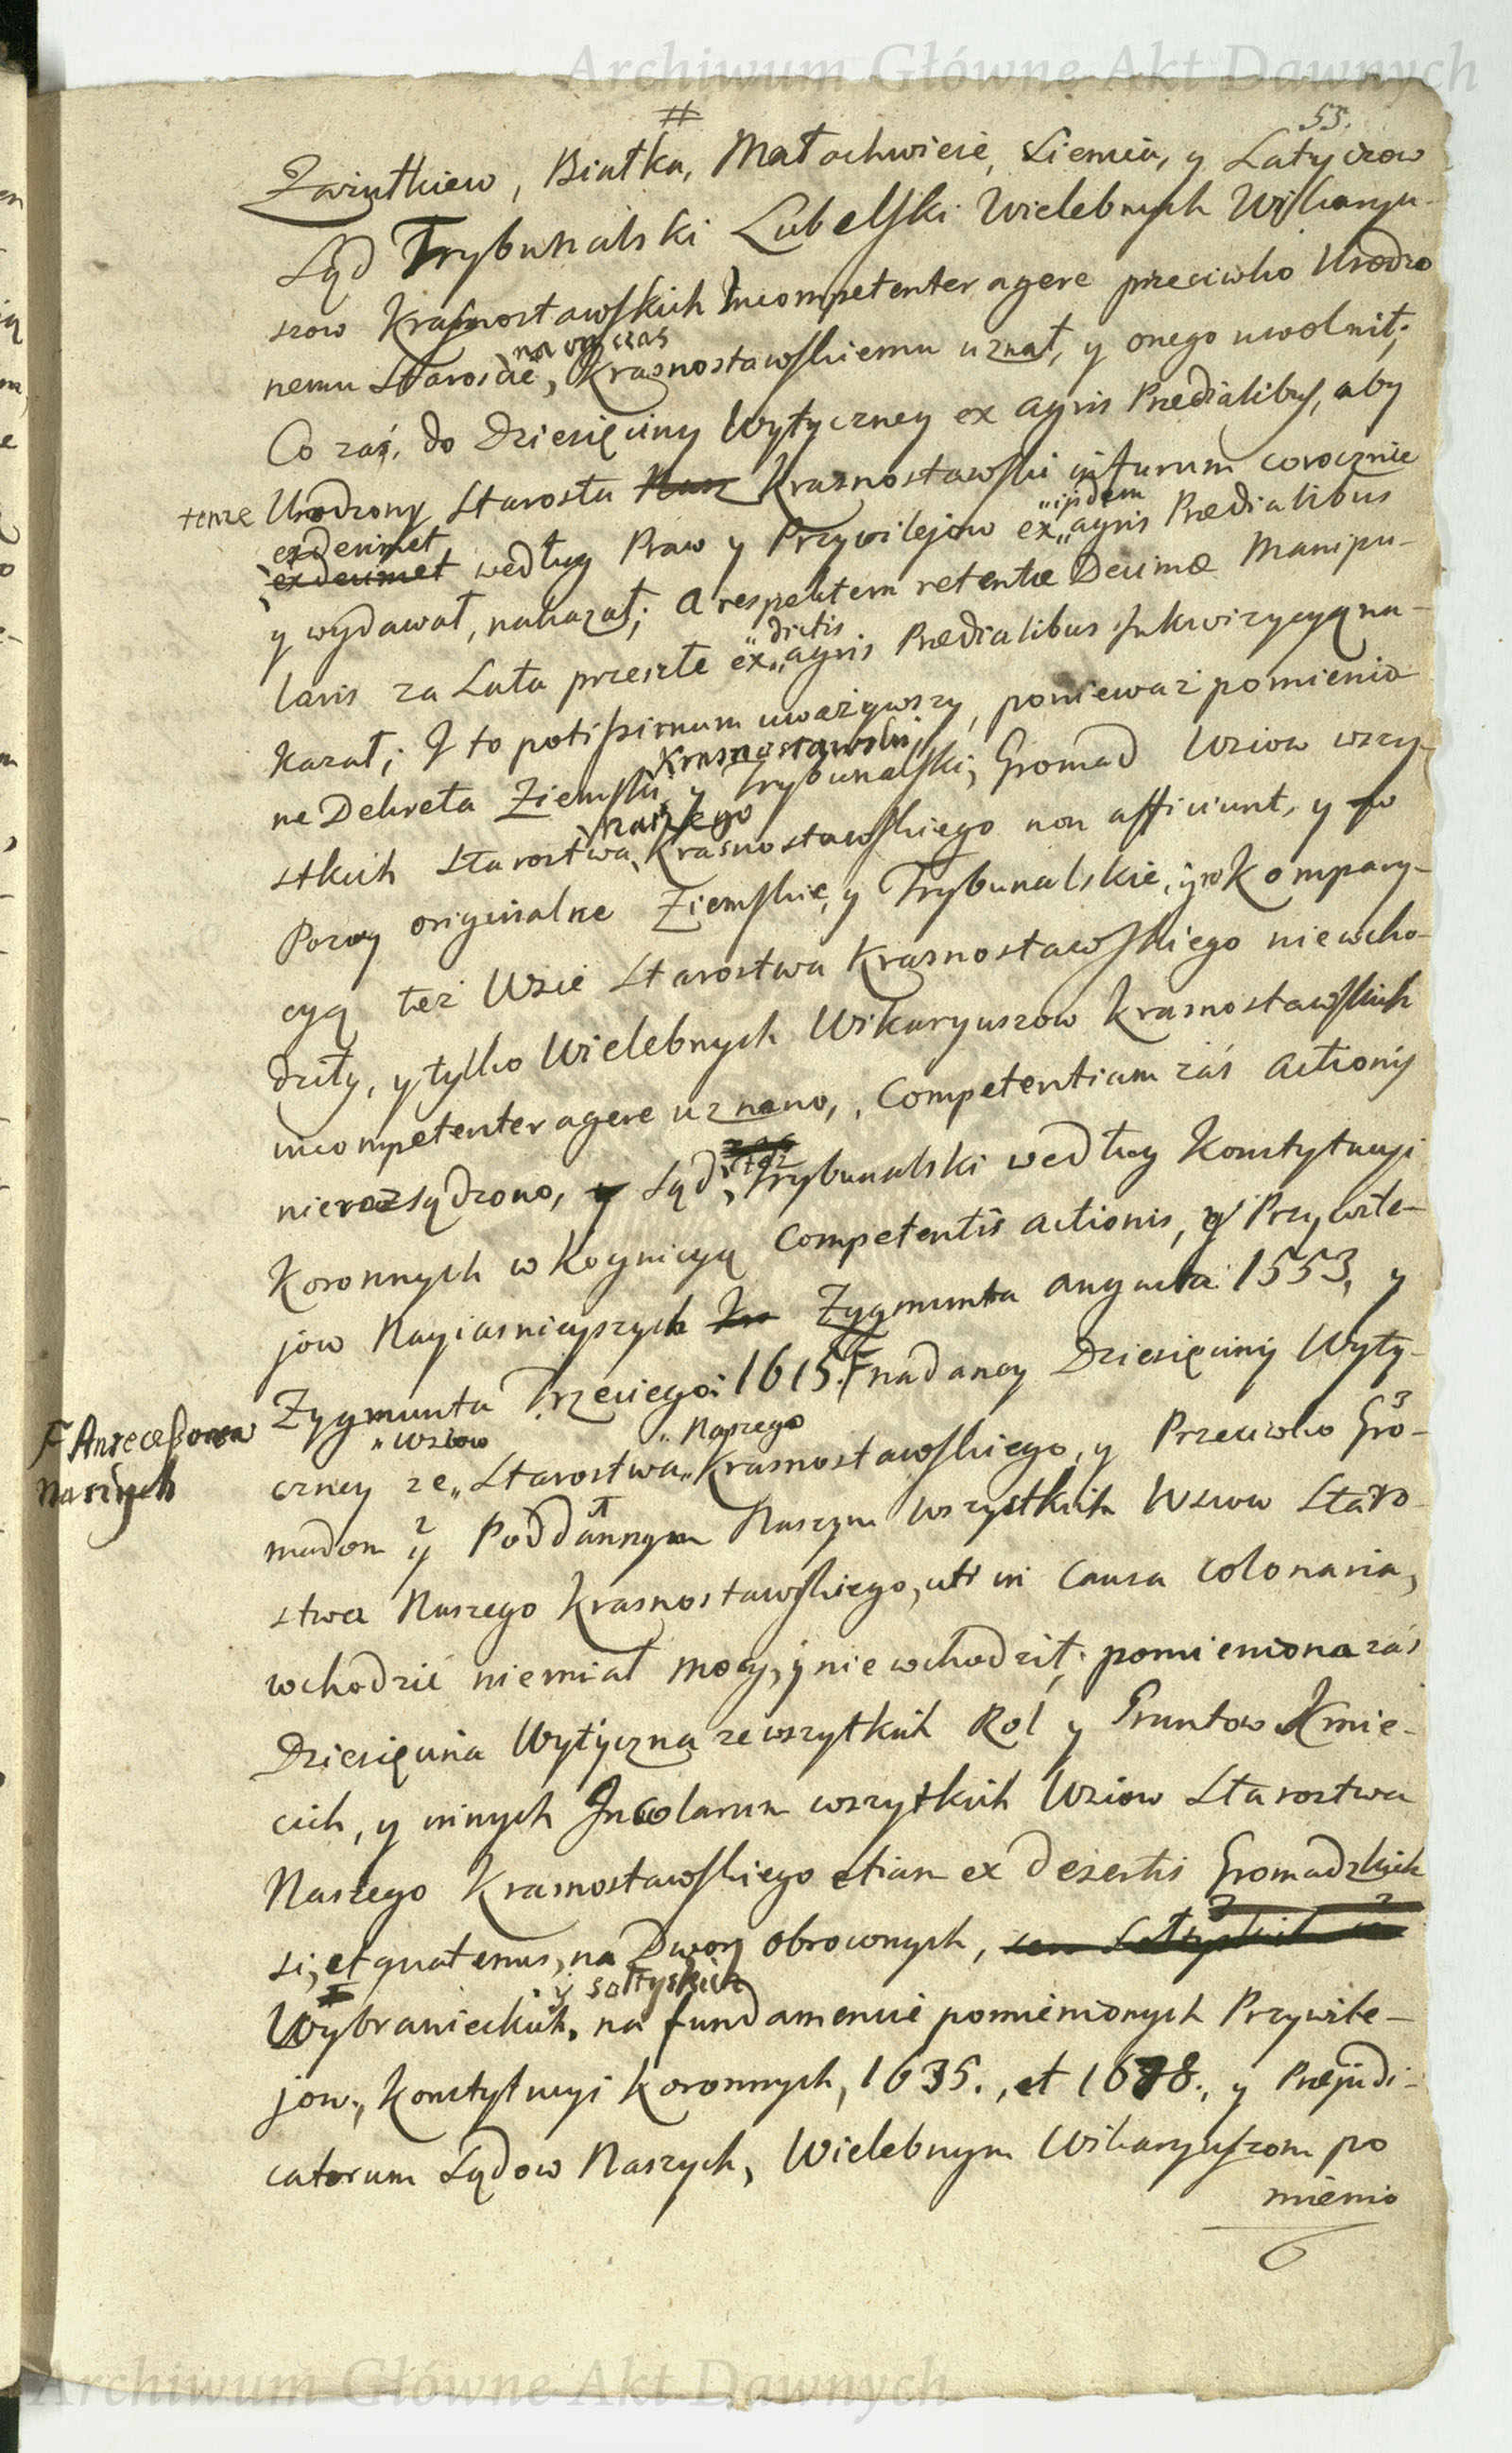 Archiwum Główne Akt Dawnych
#
53.
Zażułkiew, Białka, Małochwieie, Siennia, y Latyczow
Sąd Trybunalski Lubelski Wielebnych Wikaryu-
szow Krasnostawskich Incompetenter agere przeciwko Urodzo
na on czas
nemu Staroscie, Krasnostawskiemu uznał, y onego uwolnił;
Co zaś, do Dziesięciny Wytyczney ex agris Prædialibus, aby
tenze Urodzony Starosta Nasz Krasnostawski in futurum corocznie
exdecimet iisdem
exdecimet według Praw y Przywilejow ex agris Prædialibus
y wydawał, nakazał; A respektem retentæ Decimæ Manipu-
dictis
laris za Lata przeszłe ex agris Prædialibus Inkwizycyą na-
kazał; I to potissimum uważywszy, ponieważ pomienio
Krasnostawski
ne Dekreta Ziemski y Trybunalski, Gromad Wsiow wszy-
naszego
stkich Starostwa Krasnostawskiego non afficiunt, y w
Pozwy originalne Ziemskie, y Trybunalskie, y w Kompary-
cyą też Wsie Starostwa Krasnostawskiego niewcho-
dziły, y tylko Wielebnych Wikaryuszow Krasnostawskich
incompetenter agere uznano, Competentiam zaś Actionis
nierozsądzono, y Sąd też Trybunalski według Konstytucyi
Koronnych w Kognicyą Competentis actionis, y Przywile-
jow Nayiasnieyszych Zygmunta Augusta 1553, y
Zygmunta Trzeciego: 1615. F nadaney Dziesięciny Wyty-
F Antecessorow
Naszych
Wsiow Naszego
czney ze Starostwa Krasnostawskiego, y Przeciwko Gro-
3
madom y Poddannym Naszym wszystkich Wsiow Staro-
2 1
stwa Naszego Krasnostawskiego, uti in Causa Colonaria,
wchodzić niemiał mocy, y nie wchodził; pomieniona zaś
Dziesięcina Wytyczna ze wszytkich Rol y Gruntow Kmie-
cich, y innych Incolarum wszytkich Wsiow Starostwa
Naszego Krasnostawskiego etiam ex desertis Gromadzkich
si, et quatenus, na Dwory obroconych, seu Sołtyskich
y Sołtyskich
Wybranieckich, na fundamencie pomienionych Przywile-
jow, Konstytucyi Koronnych, 1635., et 1678., y Præjudi-
catorum Sądow Naszych, Wielebnym Wikaryuszom po
mienio
Archiwum Główne Akt Dawnych